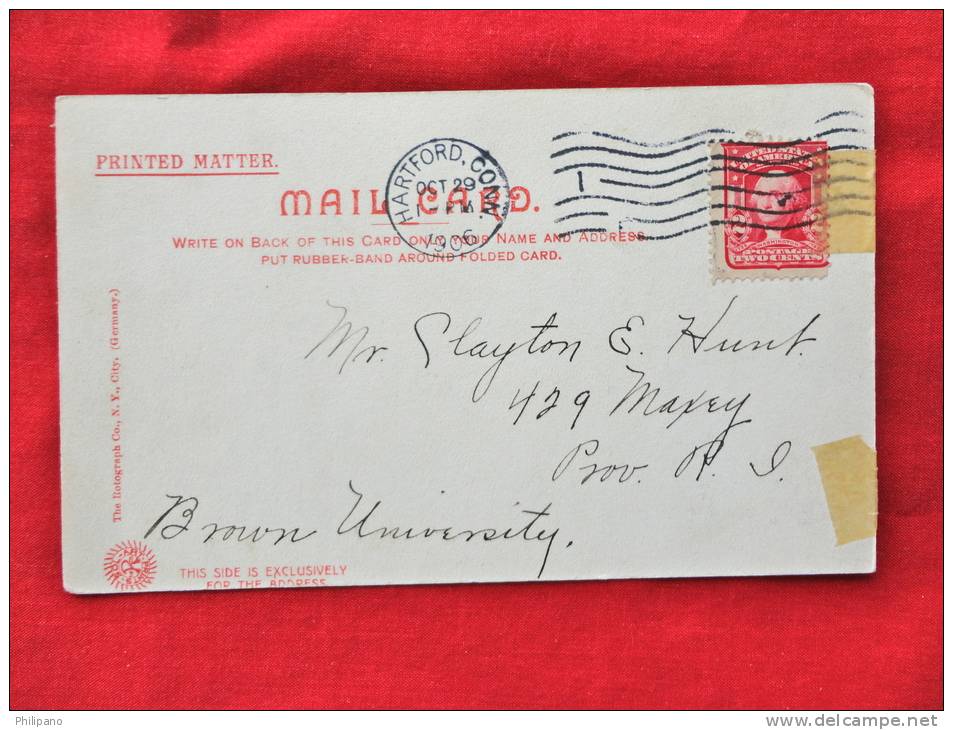 PRINTED MATTER.
MAIL CARD.
WRITE ON BACK OF THIS CARD ONLY YOUR NAME AND ADDRESS
PUT RUBBER-BAND AROUND FOLDED CARD.
HARTFORD, CONN.
OCT 29
1906
1
UNITED STATES
OF AMERICA
POSTAGE
TWO CENTS
Mr. Clayton E. Hunt.
429 Maxey
Prov. R. I.
Brown University.
The Rotograph Co., N. Y., City. (Germany.)
THIS SIDE IS EXCLUSIVELY
FOR THE ADDRESS
Philipano
www.delcampe.net